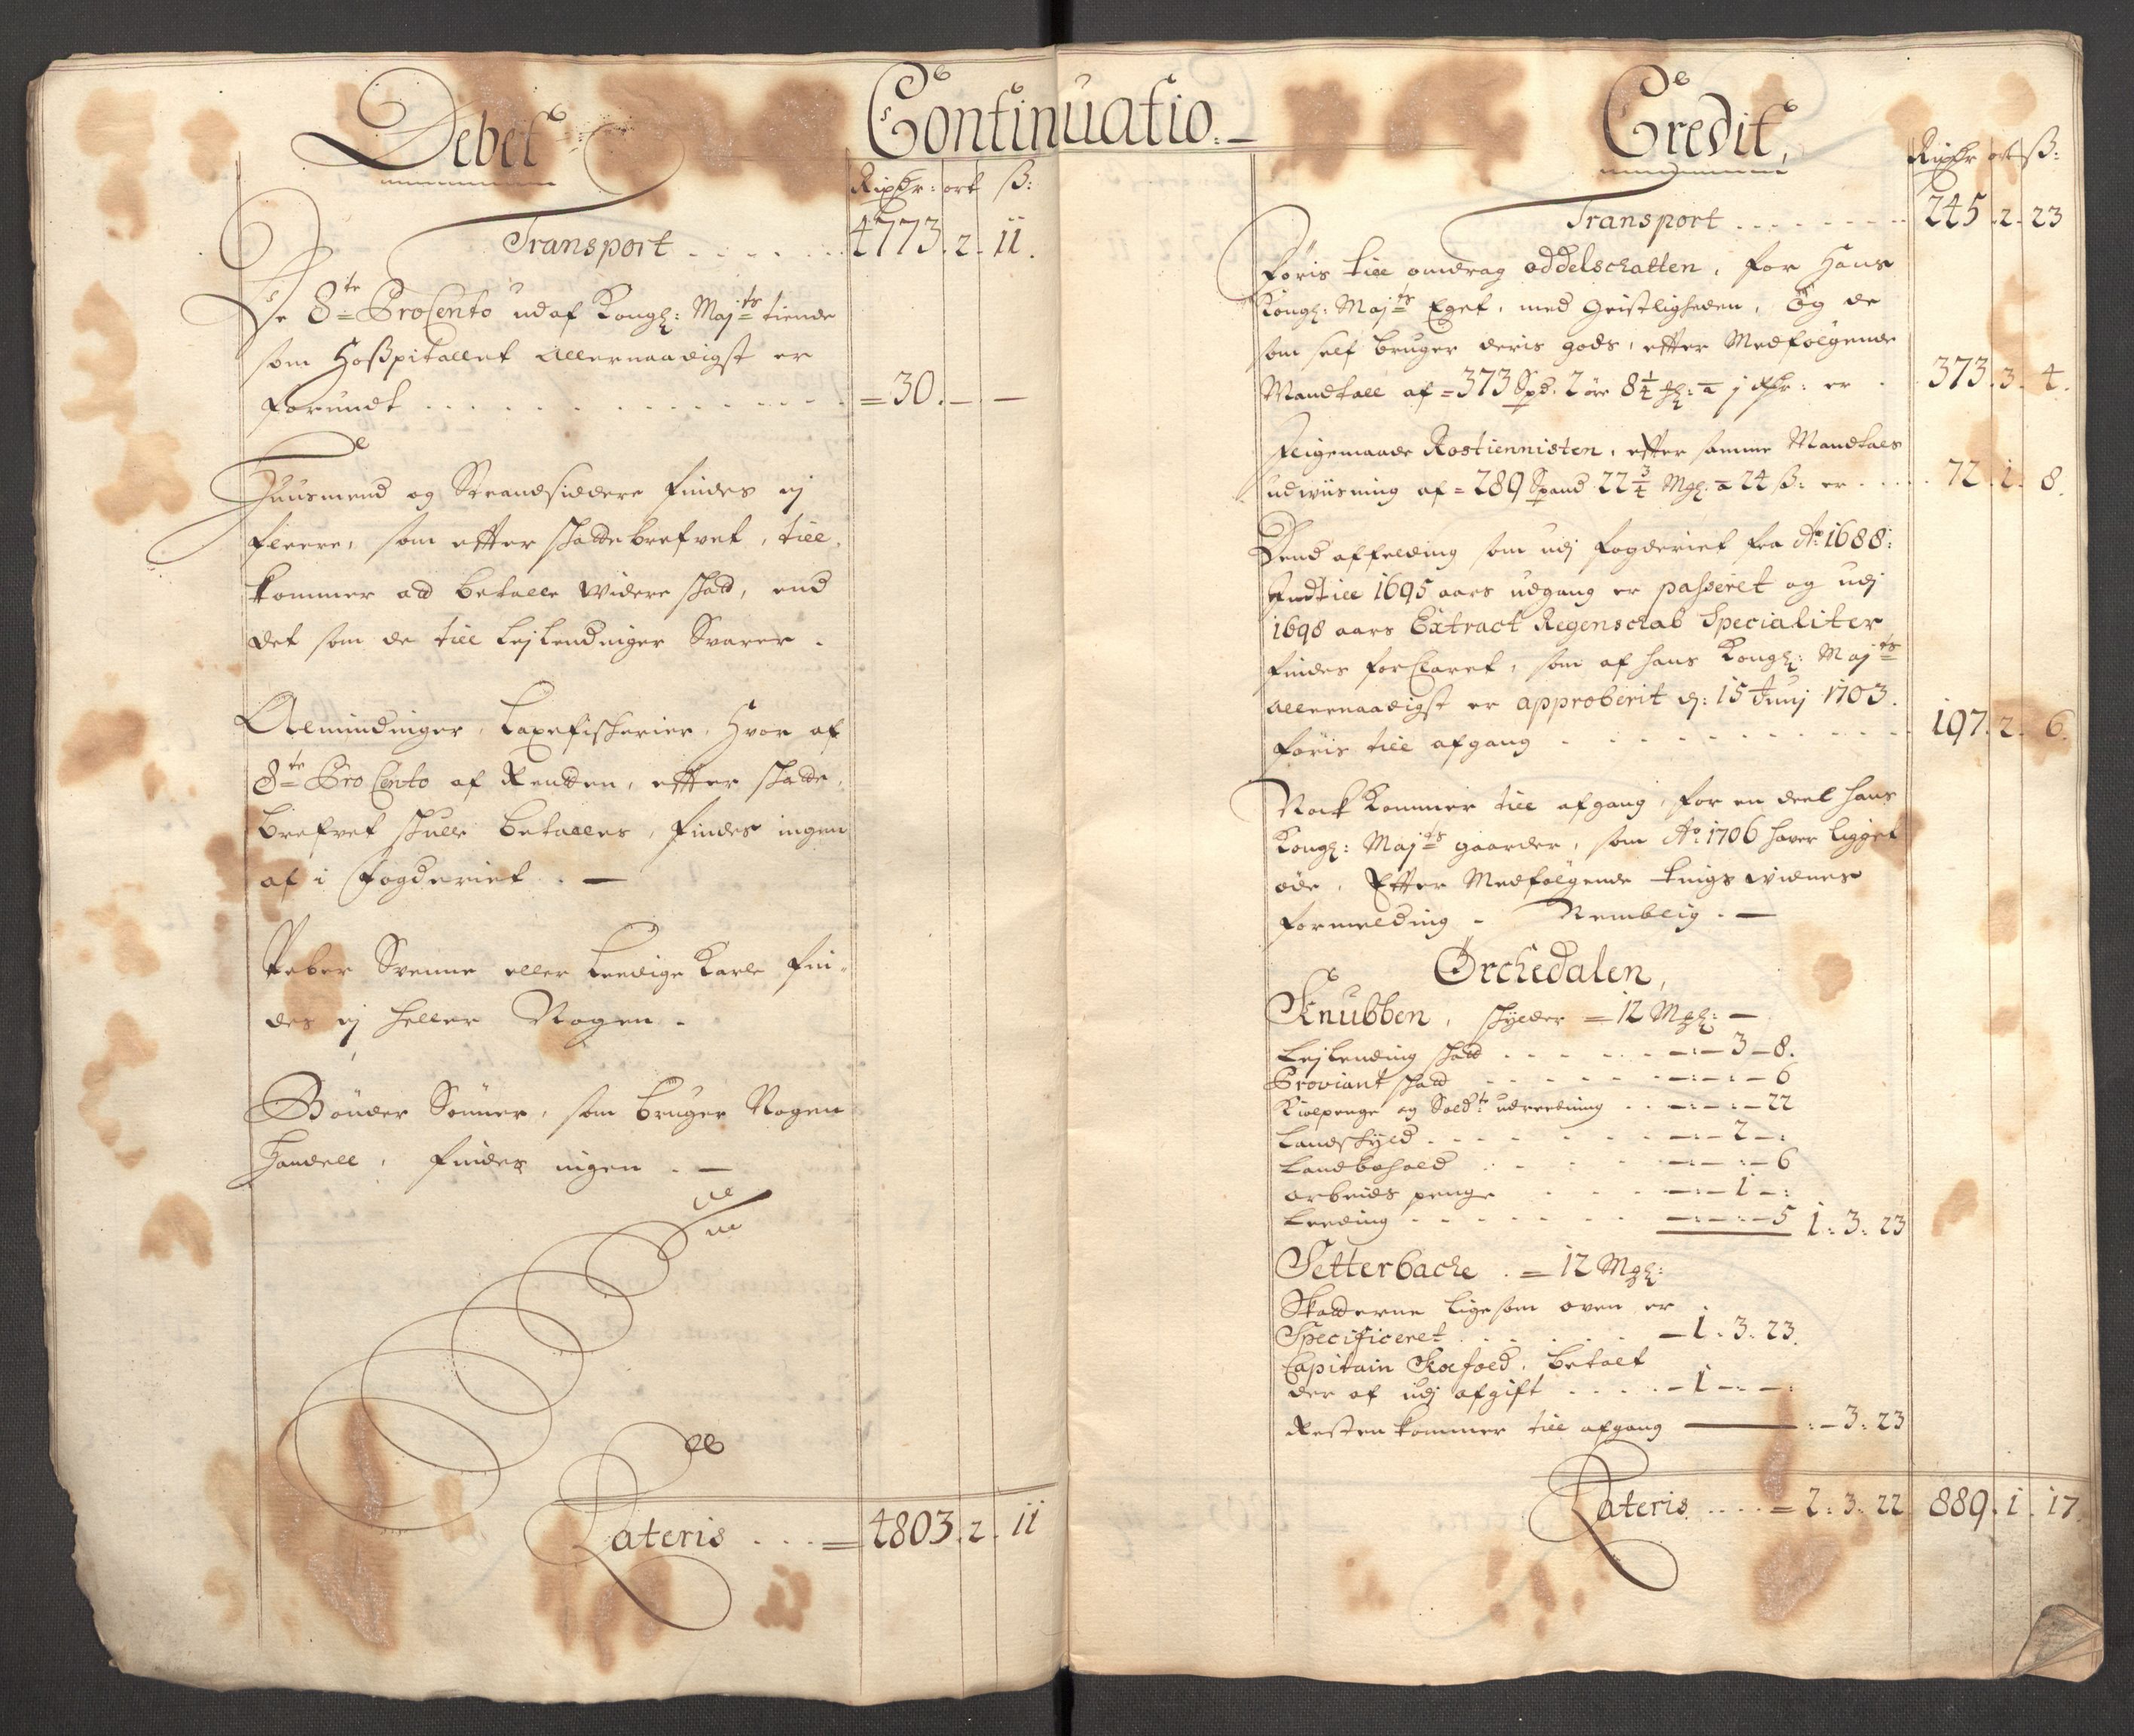 Debet
Continuatio.
Rixdr: ort ß:
Transport . . . . . . 4773. 2. 11.
De 8te ProCento udaf Kongl: Majts tiende
som Hoßpitallet allernaadigst er
forundt . . . . . . . . . . . . . = 30. — —
Huusmend og Strandsiddere findes ej
fleere, som efter skattebrefvet, till
kommer att betalle widere skatt, end
det som de till lejlendinger Svarer.
Almindinger, Laxefiskerier, Hvor af
8te Pro Cento af Rendten, efter skatte,
brefvet skulle betalles, findes ingen
af i fogderiet. —
Peber Svenne eller Leedige Karle fin,,
des ej heller Nogen.
Bönder Sönner, som bruger Nogen
Handell, findes ingen. —
Lateris . . . = 4803. 2. 11
Credit,
Rixdr ort ß:
Transport . . . . . . . 245. 2. 23
Föris till omdrag oddelschatten, for Hans
Kongl: Majts Eget, med Geistligheden, Og de
som self bruger deris gods, efter Medfölgende
Mandtall af = 373 Spd. 2 öre 8 1/4 Mgl: a 1 Rdr: er . 373. 3. 4.
Ligemaade Rostiennisten, efter samme Mandtals
udviisning af = 289 Spand 22 3/4 Mgl: a 24 ß: er . . . 72. 1. 8.
Dend affelding som udj fogderiet fra Ao: 1688:
Indtill 1695 aars udgang er passeret og udj
1698 aars Extract Regenschab Specialiter
findes forclaret, som af hans Kongl: Majts
allernaadigst er approberit d: 15 Junj 1703.
föris till afgang . . . . . . . . . 197. 2. 6.
Nock kommer till afgang, for en deel hans
Kongl: Majts gaarder, som Ao: 1706 haver ligget
öde, Efter Medfölgende tings vidnes
formelding. Nemblig. —
Orchedalen,
Knubben, skylder = 12 Mgl: —
Lejlending skatt . . . . . . —:— 3 — 8.
Proviant skatt . . . . . —:—:— 6
Kiolpenge og Soldte: udreedning . . —:—:— 22
Landskyld . . . . . . —:— 2 —:
Landbohold . . . . —:—:— 6
Arbeids penge . . . . —:— 1 —:
Leeding . . . . . . —:—:— 5 1: 3: 23
Setterbache . = 12 Mgl:
Skatterne ligesom oven er
Specificeret . . . . . . — 1. 3. 23.
Capitain Koefoed, betalt
der af udj afgift . . . . — 1 —:—:
Resten kommer till afgang ——— : — 3: 23
Lateris . . . . = 2: 3: 22 889. 1. 17.